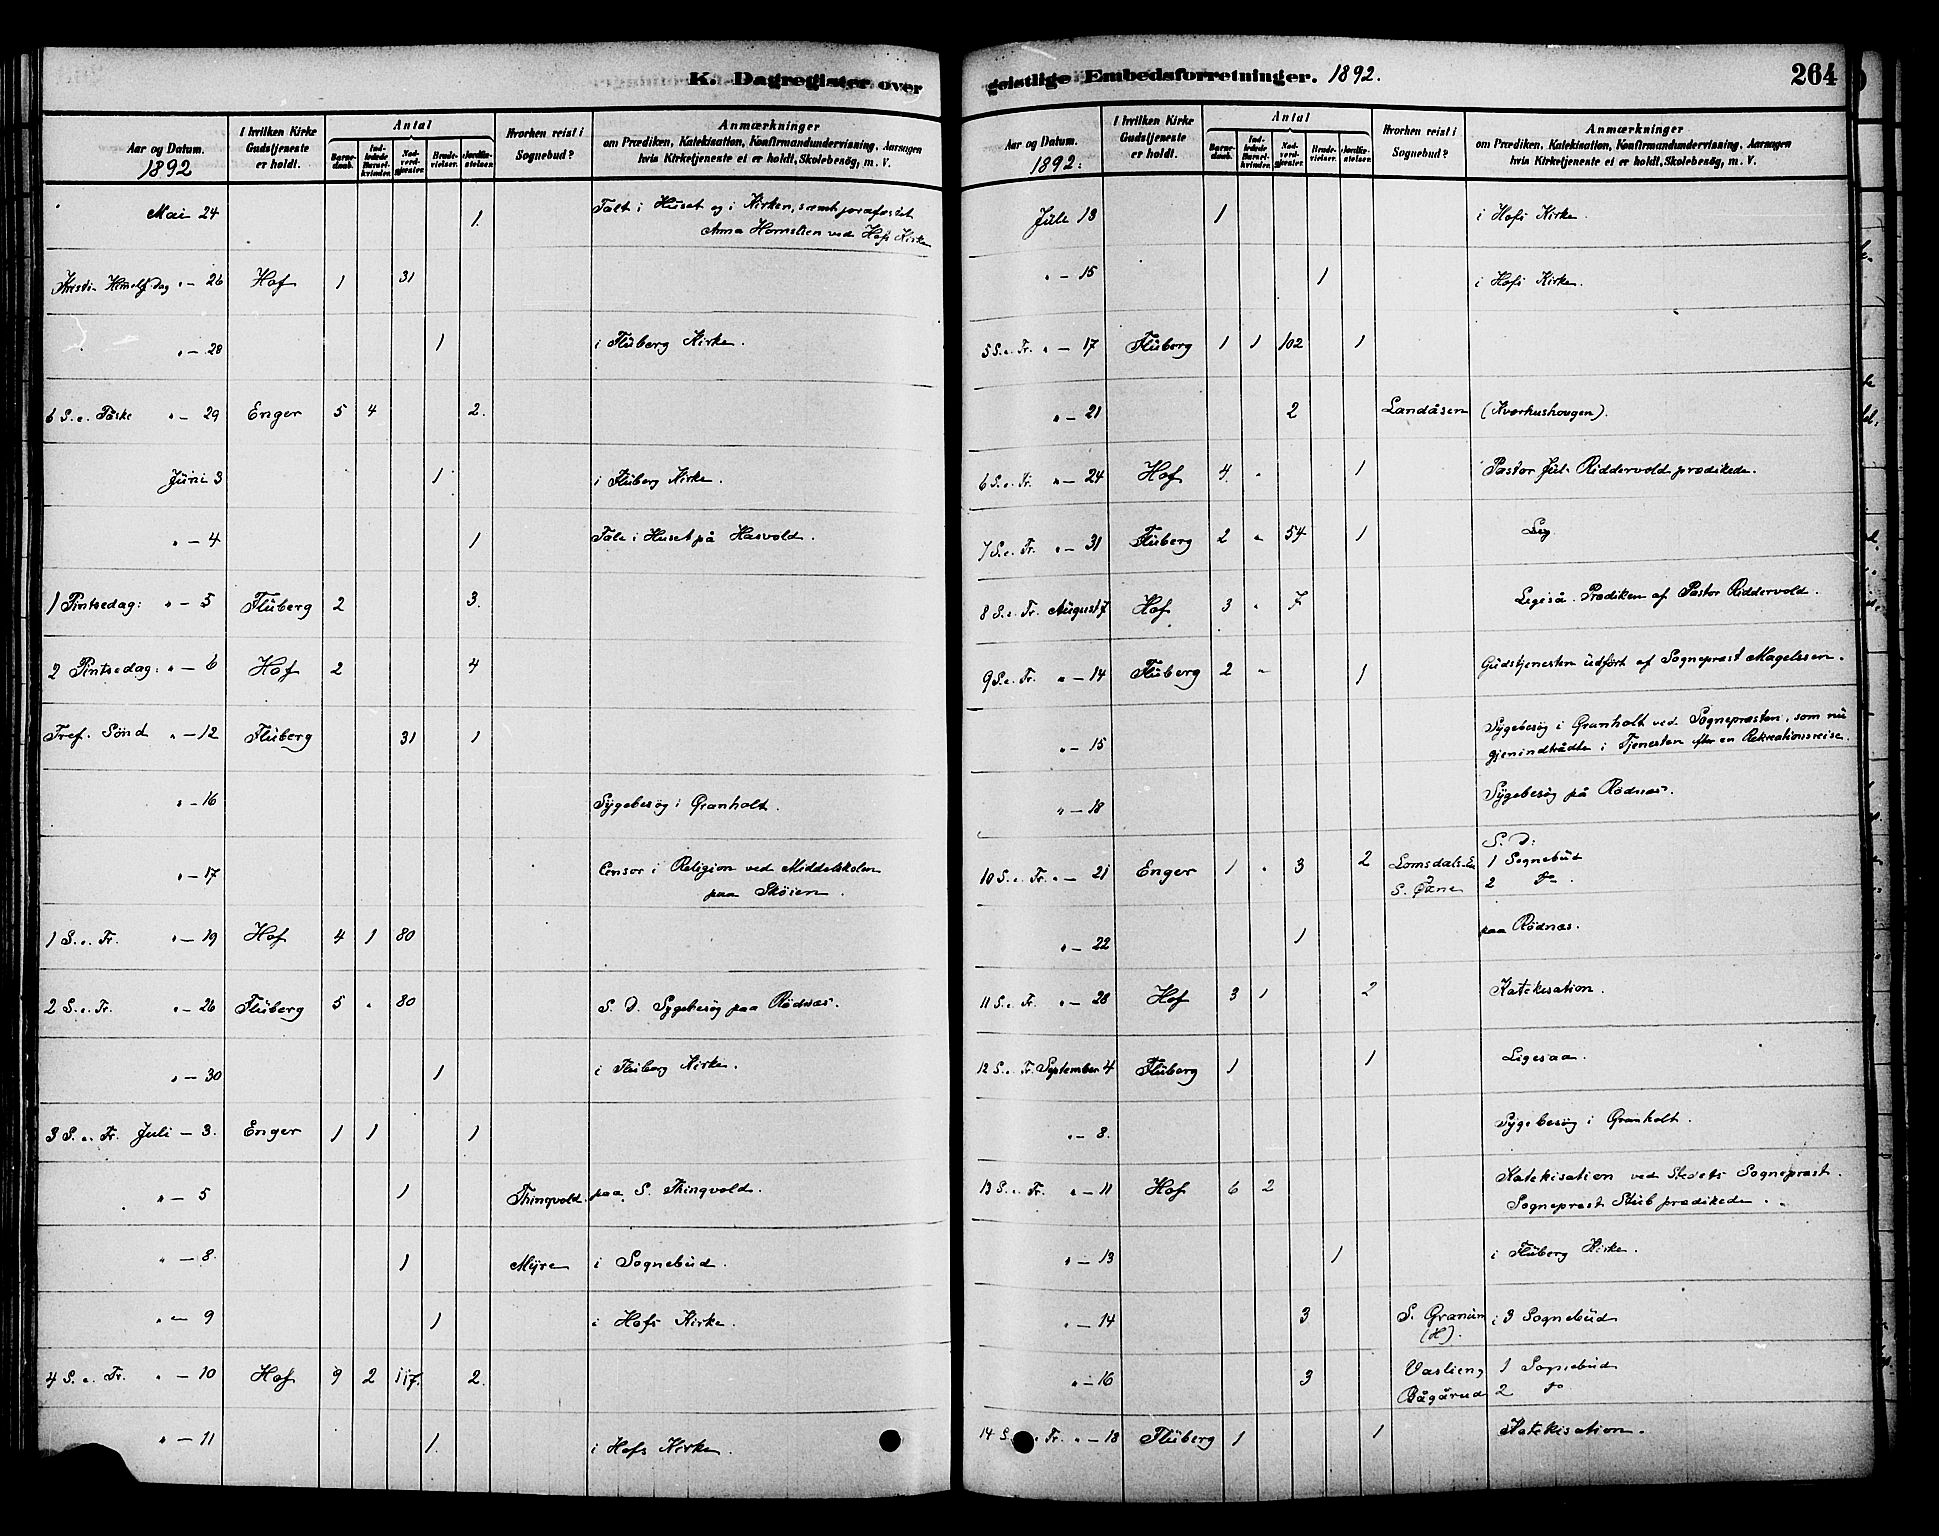 K. Dagregister over
Aar og Datum.
1892
I hvilken Kirke Gudstjeneste er holdt.
Antal
Barnedaab.
Indledede Barselkvinder.
Nadverdgjæster.
Brudevielser.
Jordfæstelser.
Hvorhen reist i Sognebud?
Anmærkninger
om Prædiken, Katekisation, Konfirmandundervisning, Aarsagen
hvis Kirketjeneste ei er holdt, Skolebesøg, m. V.
Mai 24 1. Talt i Huset og i Kirken, samt jordfæstet
Anna Hornslien ved Hofs Kirke
Kristi Himelf. dag " - 26 Hof 1 31
" - 28 1 i Flüberg Kirke.
6 S. e. Påske " - 29 Enger 5 4 2.
Jüni 3 1 i Flüberg Kirke.
" - 4 1 Tale i Huset på Hasvold.
1 Pintsedag: " - 5 Flüberg 2 3.
2 Pintsedag: " - 6 Hof 2 4
Tref. Sønd " - 12 Flüberg 31 1
" - 16 Sygebesøg i Granholt.
" - 17 Censor i Religion ved Middelskolen
paa Skøien.
1 S. e. Tr. " - 19 Hof 4 1 80
2 S. e. Tr. " - 26 Flüberg 5 " 80 S. D. Sygebesøg paa Rødnæs.
" - 30 1 i Flüberg Kirke.
3 S. e. Tr. Juli - 3. Enger 1 1 1
" - 5 1 Thingvold paa S. Thingvold.
" - 8. 1 Myre i Sognebud.
" - 9 1 i Hofs Kirke.
4 S. e. Tr. " - 10 Hof 9 2 117. 2.
" - 11 1. i Hofs Kirke.
geistlige Embedsforretninger. 1892.
264
Aar og Datum.
1892.
I hvilken Kirke Gudstjeneste er holdt.
Antal
Barnedaab.
Indledede Barselkvinder.
Nadverdgjæster.
Brudevielser.
Jordfæstelser.
Hvorhen reist i Sognebud?
Anmærkninger
om Prædiken, Katekisation, Konfirmandundervisning, Aarsagen
hvis Kirketjeneste ei er holdt, Skolebesøg, m. V.
Juli 13 1 i Hofs Kirke.
" - 15 1 i Hofs Kirke.
5 S. e. Tr. " - 17 Flüberg 1 1 102 1
" - 21 2 Landåsen (Kværhushougen).
6 S. e. Tr. " - 24 Hof 4. " 1 Pastor Jul. Riddervold prædikede.
7 S. e. Tr. " - 31 Flüberg 2 " 54 1
8 S. e. Tr. August 7 Hof 3 " 7 Ligeså. Prædiken af Pastor Riddervold.
9 S. e. Tr. " - 14 Flüberg 2 " 1 Gudstjenesten udført af Sogneprest Magelssen.
" - 15 Sygebesøg i Granholt ved Sognepresten, som nu
gjenindtrådte i Tjenesten efter en Rekreationsreise.
" - 18 Sygebesøg på Rødnæs.
S. D:
10 S. e. Tr. " - 21 Enger 1 " 3 2 Lomsdals-Ei 1 Sognebud
S. Øxne 2 do.
" - 22 1 paa Rødnæs.
11 S. e. Tr. " - 28 Hof 3 1 2 Katekisation.
12 S. e. Tr. September 4 Flüberg 1 1 Ligesaa.
" - 8. Sygebesøg i Granholt.
13 S. e. Tr. " - 11 Hof 6 2 Katekisation ved Stedets Sogneprest.
Sogneprest Stub prædikede.
" - 13 1 i Flüberg Kirke.
" - 14 3 S. Granum i 3 Sognebud
(H).
" - 16 3 Vaslien, 1 Sognebud
Bågårud 2 do
14 S. e. Tr. " - 18 Flüberg 1 1 Katekisation.